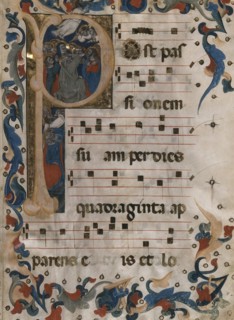 POst pas
si onem
su am per dies
quadraginta ap
parens e is et lo